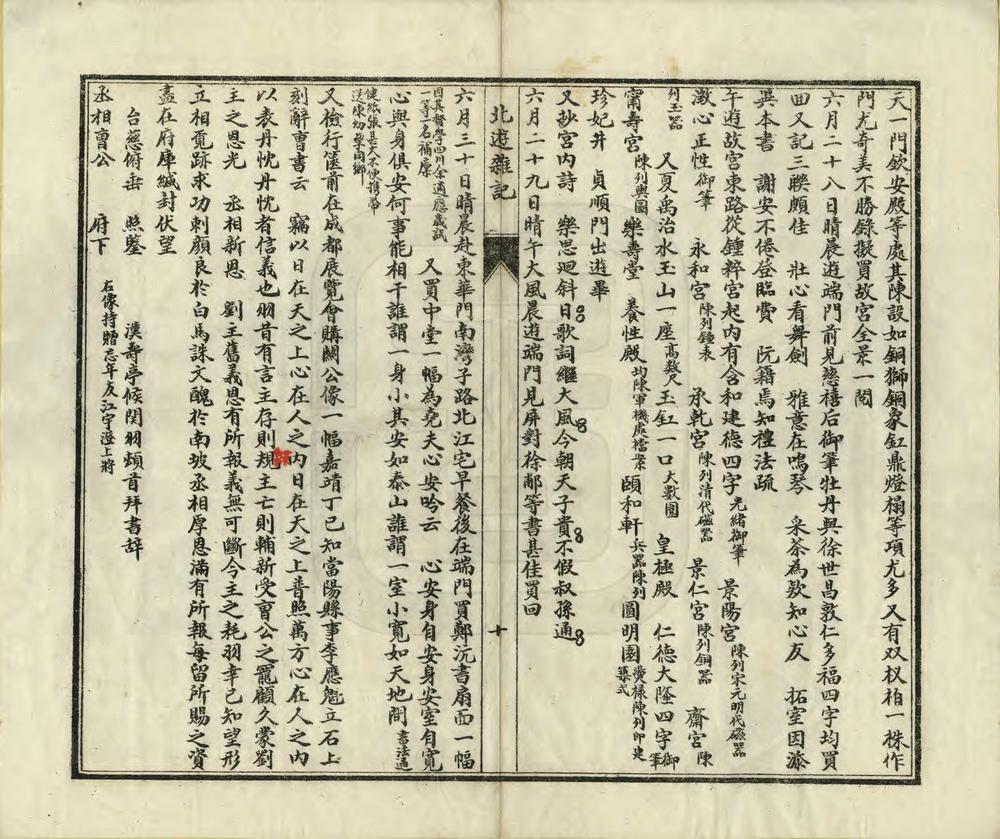 天一門欽安殿等處其陳設如銅獅銅象缸鼎燈榻等項尤多又有双权柏一株作
門尤奇美不勝錄擬買故宮全景一閱
六月二十八日晴晨遊端門前見慈禧后御筆牡丹與徐世昌敦仁多福四字均買
回又記三聯頗佳　壯心看舞劍　雅意在鳴琴　采茶為欵知心友　拓室因添
異本書　謝安不倦登臨費　阮籍焉知禮法疏
午遊故宮東路從鍾粹宮起內有含和建德四字光緒御筆　景陽宮陳列宋元明代磁器
澂心正性御筆　永和宮陳列鐘表　承乾宮陳列清代磁器　景仁宮陳列銅器　齋宮陳
列玉器　又夏禹治水玉山一座高數尺玉缸一口大數圍　皇極殿　仁德大隆四字御筆
甯壽宮陳列輿圖　樂壽堂　養性殿均陳軍機處檔案　頤和軒兵器陳列圓明園燙樣陳列即建築式
珍妃井　貞順門出遊畢
又抄宮內詩　樂思迴斜日歌詞繼大風今朝天子貴不假叔孫通
六月二十九日晴午大風晨遊端門見屏對徐郙等書甚佳買回
北遊雜記
十
六月三十日晴晨赴東華門南灣子路北江宅早餐後在端門買鄭沅書扇面一幅
因其督學四川余適應歲試一等一名補廩　又買中堂一幅為堯夫心安吟云　心安身自安身安室自寬
心與身俱安何事能相干誰謂一身小其安如泰山誰謂一室小寬如天地間書法通
健紙張甚大不便攜帶送陳幼孳同鄉
又檢行篋前在成都展覽會購關公像一幅嘉靖丁巳知當陽縣事李應魁立石上
刻辭曹書云　竊以日在天之上心在人之內日在天之上普照萬方心在人之內
以表丹忱丹忱者信義也羽昔有言主存則歸主亡則輔新受曹公之寵顧久蒙劉
主之恩光　丞相新恩　劉主舊義恩有所報義無可斷今主之耗羽幸已知望形
立相覓跡求功刺顏良於白馬誅文醜於南坡丞相厚恩滿有所報每留所賜之資
盡在府庫緘封伏望
台慈俯垂　照鑒　漢壽亭侯関羽頓首拜書辞
丞相曹公　府下　右像持贈忘年友江宇澄上將